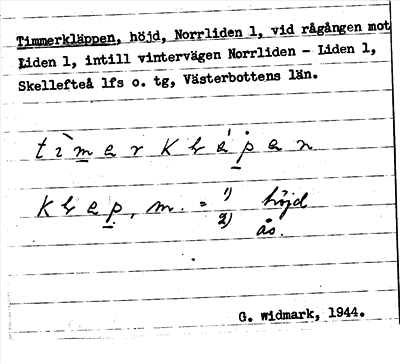 Timmerkläppen, höjd, Norrliden 1, vid rågången mot
Liden 1, intill vintervägen Norrliden - Liden 1,
Skellefteå lfs o. tg, Västerbottens län.
klep, m. = 1) höjd
2) ås.
G. Widmark, 1944.